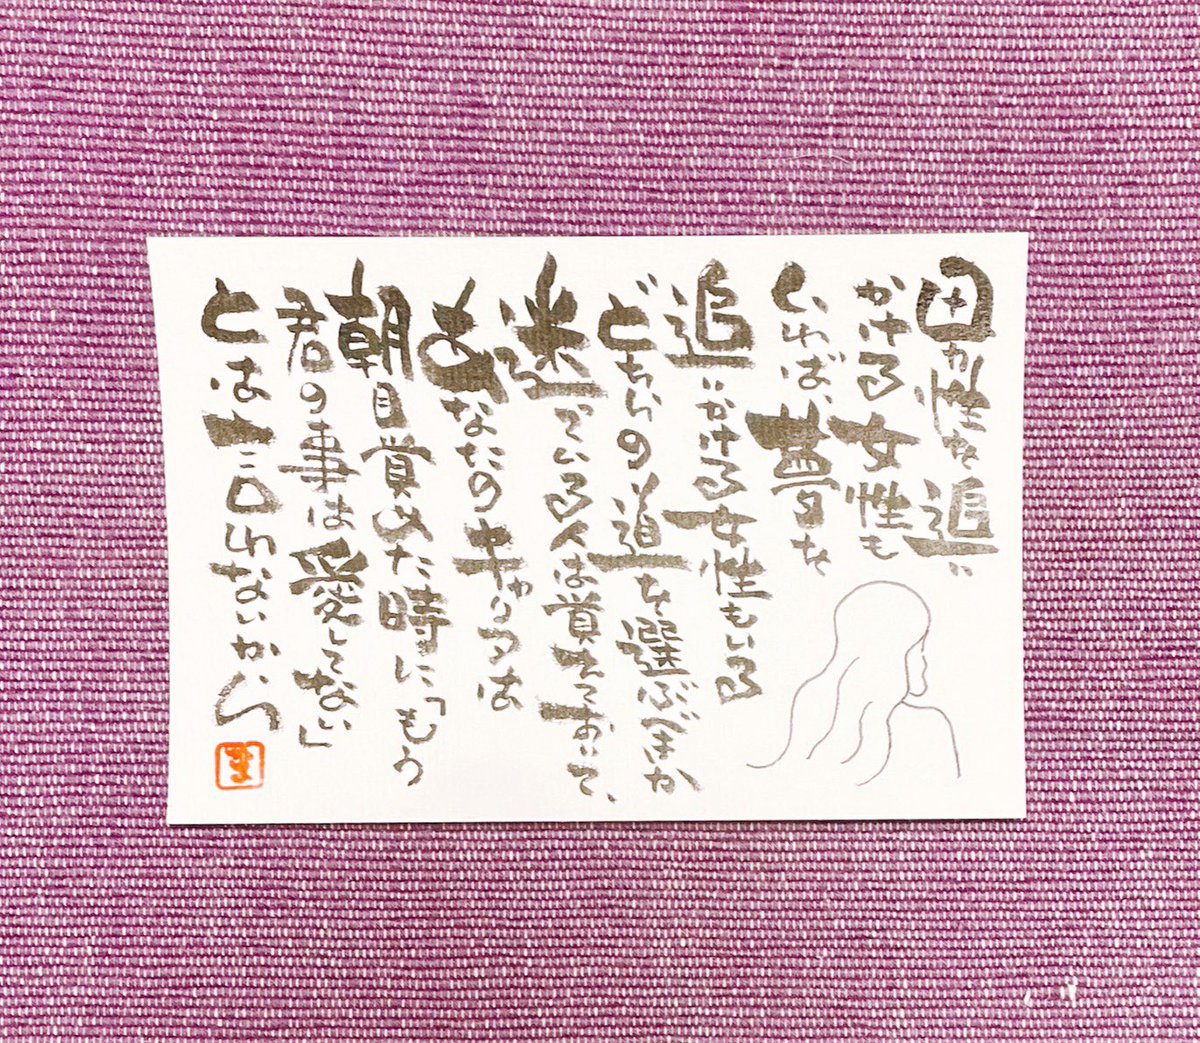 男性を追い
かける女性も
いれば、夢を
追いかける女性もいる
どちらの道を選ぶべきか
迷っている人は覚えておいて、
あなたのキャリアは
朝目覚めた時に「もう
君の事は愛してない」
とは言わないから
ま